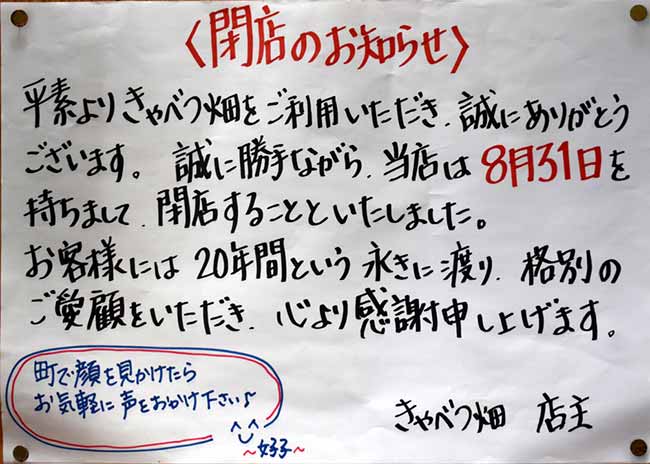 〈閉店のお知らせ〉
平素よりきゃべつ畑をご利用いただき、誠にありがとう
ございます。誠に勝手ながら、当店は8月31日を
持ちまして、閉店することといたしました。
お客様には20年間という永きに渡り、格別の
ご愛顧をいただき、心より感謝申し上げます。
町で顔を見かけたら
お気軽に声をおかけ下さい♪
きゃべつ畑 店主